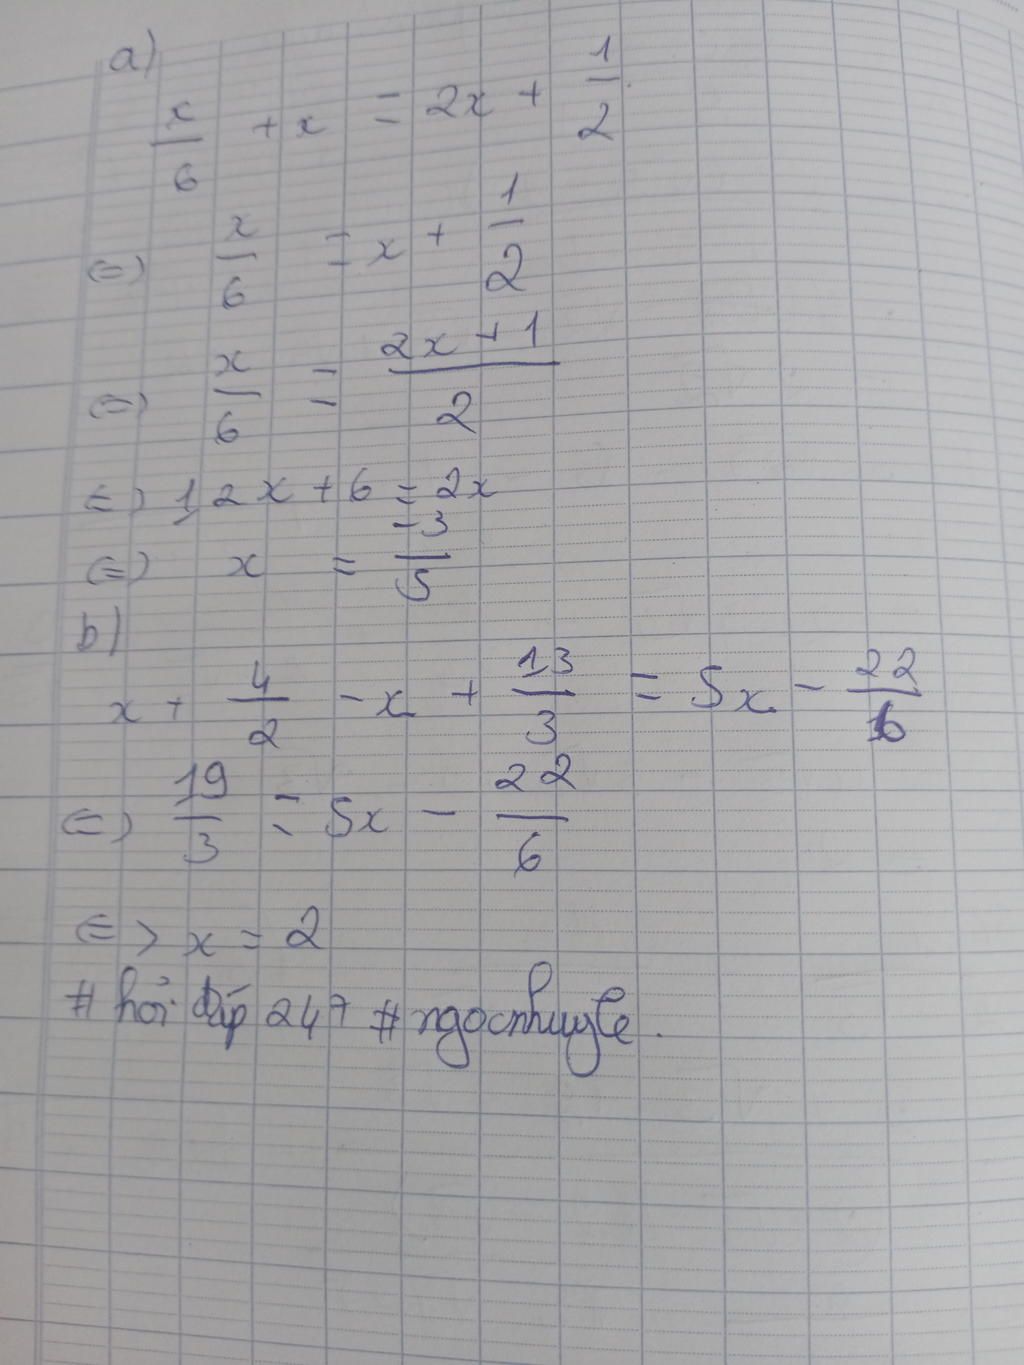 a)
x/6 + x = 2x + 1/2
(=) x/6 = x + 1/2
(=) x/6 = (2x + 1)/2
(=) 12x + 6 = 2x
(=) x = -3/5
b)
x + 4/2 - x + 13/3 = 5x - 22/6
(=) 19/3 = 5x - 22/6
(=) x = 2
# hỏi đáp 247 # ngocnhuyle.